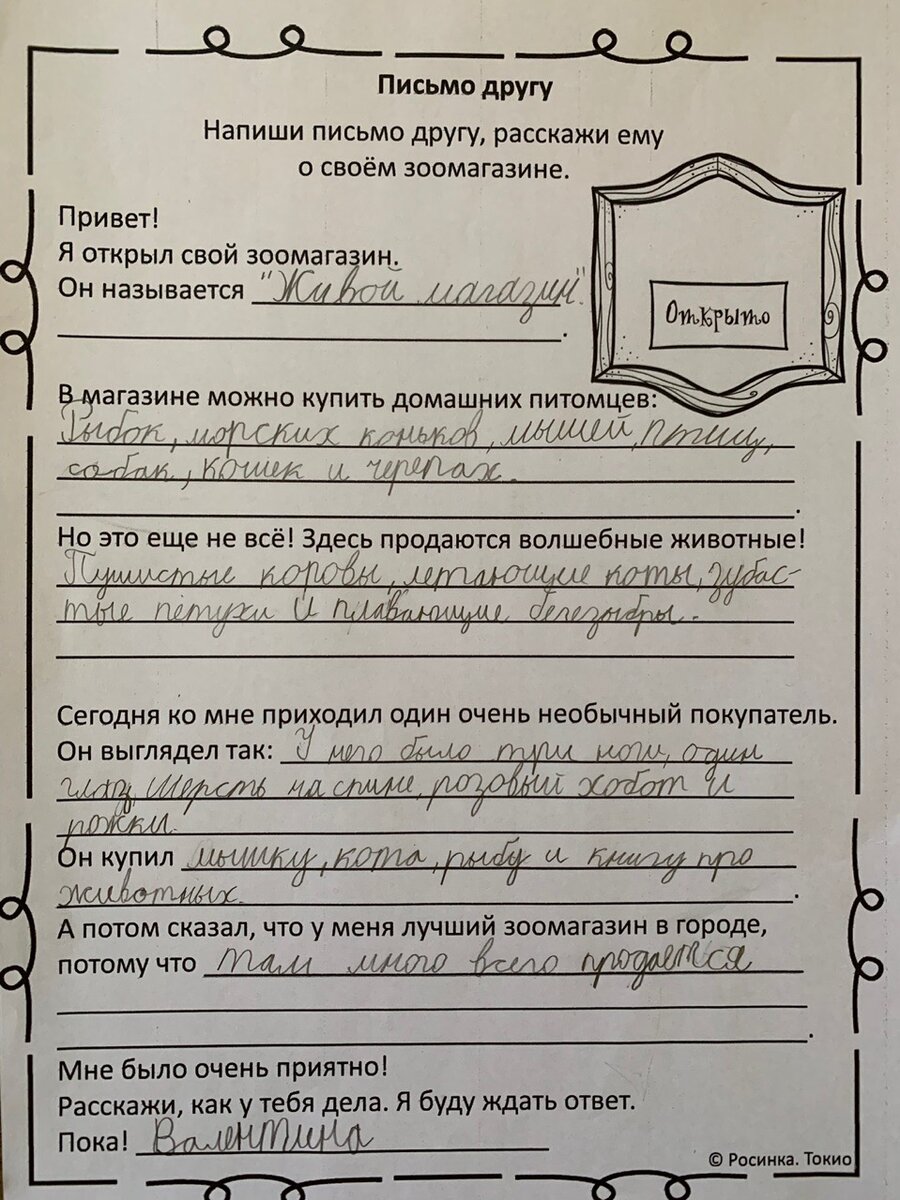 Письмо другу
Напиши письмо другу, расскажи ему
о своём зоомагазине.
Привет!
Я открыл свой зоомагазин.
Он называется "Живой магазин".
Открыто
В магазине можно купить домашних питомцев:
Рыбок, морских коньков, мышей, птиц,
собак, кошек и черепах.
Но это еще не всё! Здесь продаются волшебные животные!
Пушистые коровы, летающие коты, зубас-
тые петухи и плавающие белезыбры.
Сегодня ко мне приходил один очень необычный покупатель.
Он выглядел так: У него было три ноги, один
глаз, шерсть на спине, розовый хобот и
рожки.
Он купил мышку, кота, рыбу и книгу про
животных.
А потом сказал, что у меня лучший зоомагазин в городе,
потому что там много всего продается
Мне было очень приятно!
Расскажи, как у тебя дела. Я буду ждать ответ.
Пока! Валентина
© Росинка. Токио